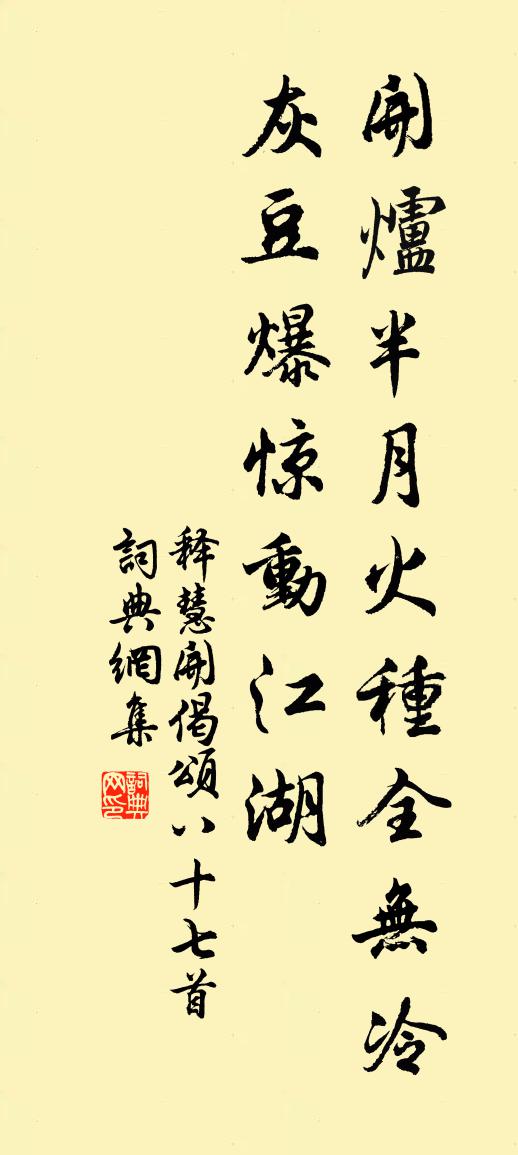 開爐半月火種全無冷
灰豆爆惊動江湖
释慧開偈頌八十七首
詞典網集
詞典网印